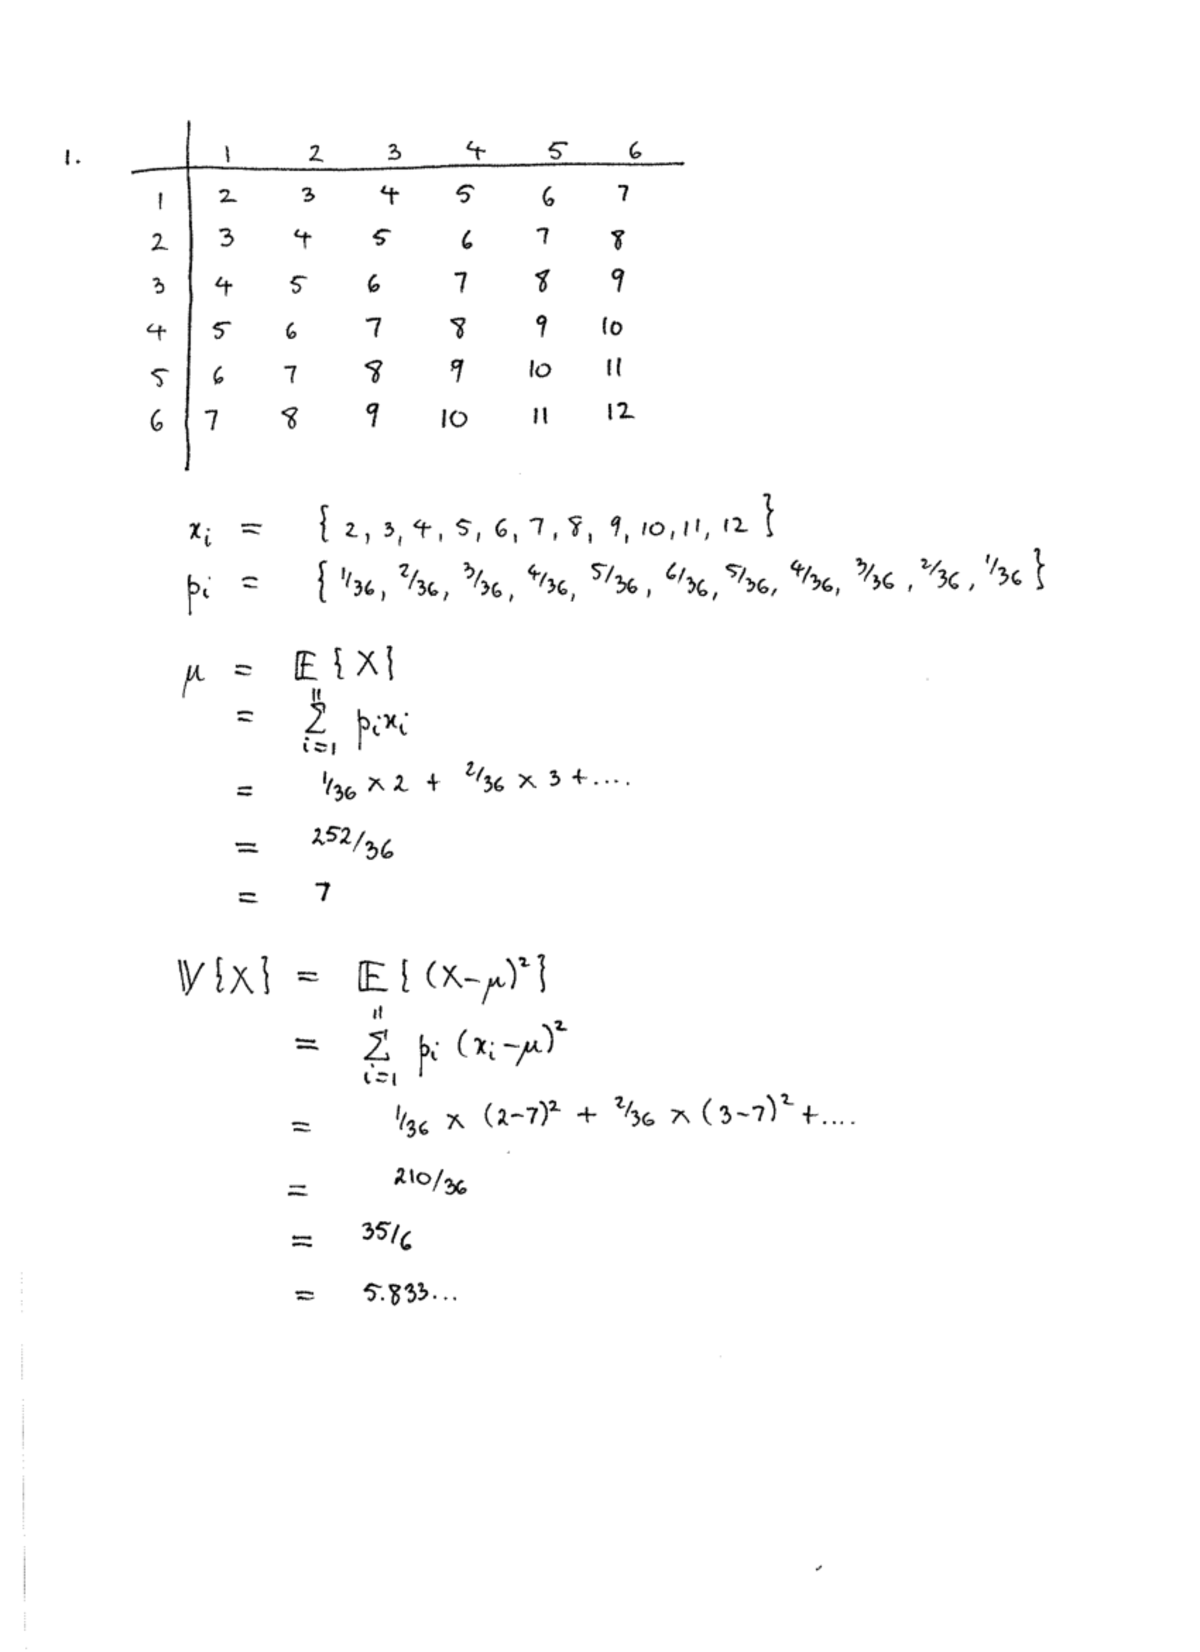 1.
1 2 3 4 5 6
1 2 3 4 5 6 7
2 3 4 5 6 7 8
3 4 5 6 7 8 9
4 5 6 7 8 9 10
5 6 7 8 9 10 11
6 7 8 9 10 11 12
xi = { 2, 3, 4, 5, 6, 7, 8, 9, 10, 11, 12 }
pi = { 1/36, 2/36, 3/36, 4/36, 5/36, 6/36, 5/36, 4/36, 3/36, 2/36, 1/36 }
μ = 𝔼 { X }
= 11 Σ i=1 pixi
= 1/36 × 2 + 2/36 × 3 + ....
= 252/36
= 7
𝕍 { X } = 𝔼 { (X-μ)² }
= 11 Σ i=1 pi (xi-μ)²
= 1/36 × (2-7)² + 2/36 × (3-7)² + ....
= 210/36
= 35/6
= 5.833...